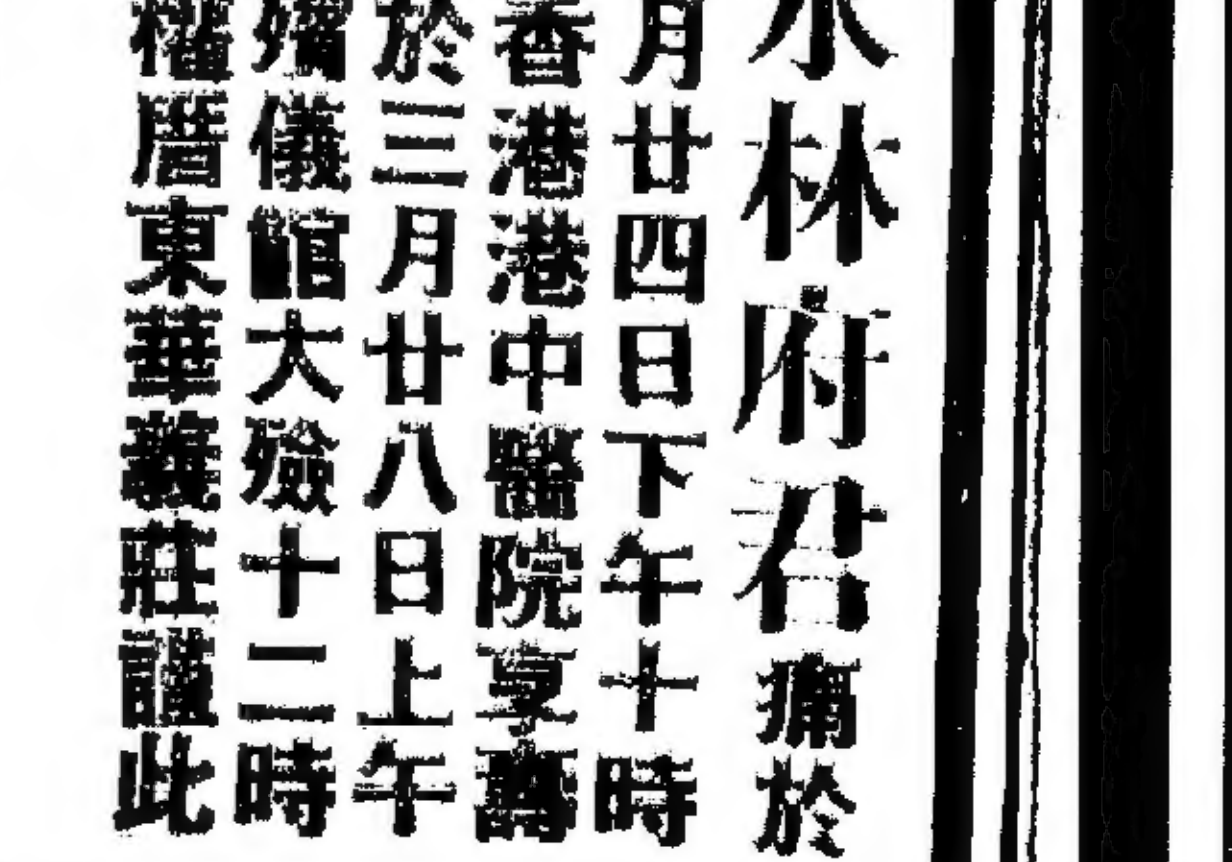 林府君痛於
月廿四日下午十時
香港港中醫院享壽
於三月廿八日上午
殯儀館大殮十二時
權厝東華義莊謹此